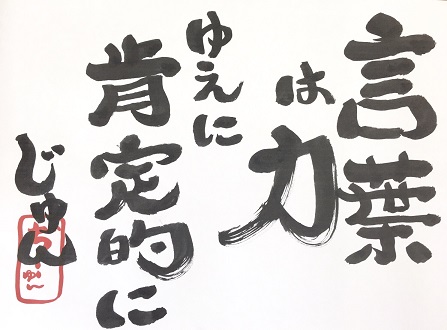 言葉
は力
ゆえに
肯定的に
じゅん